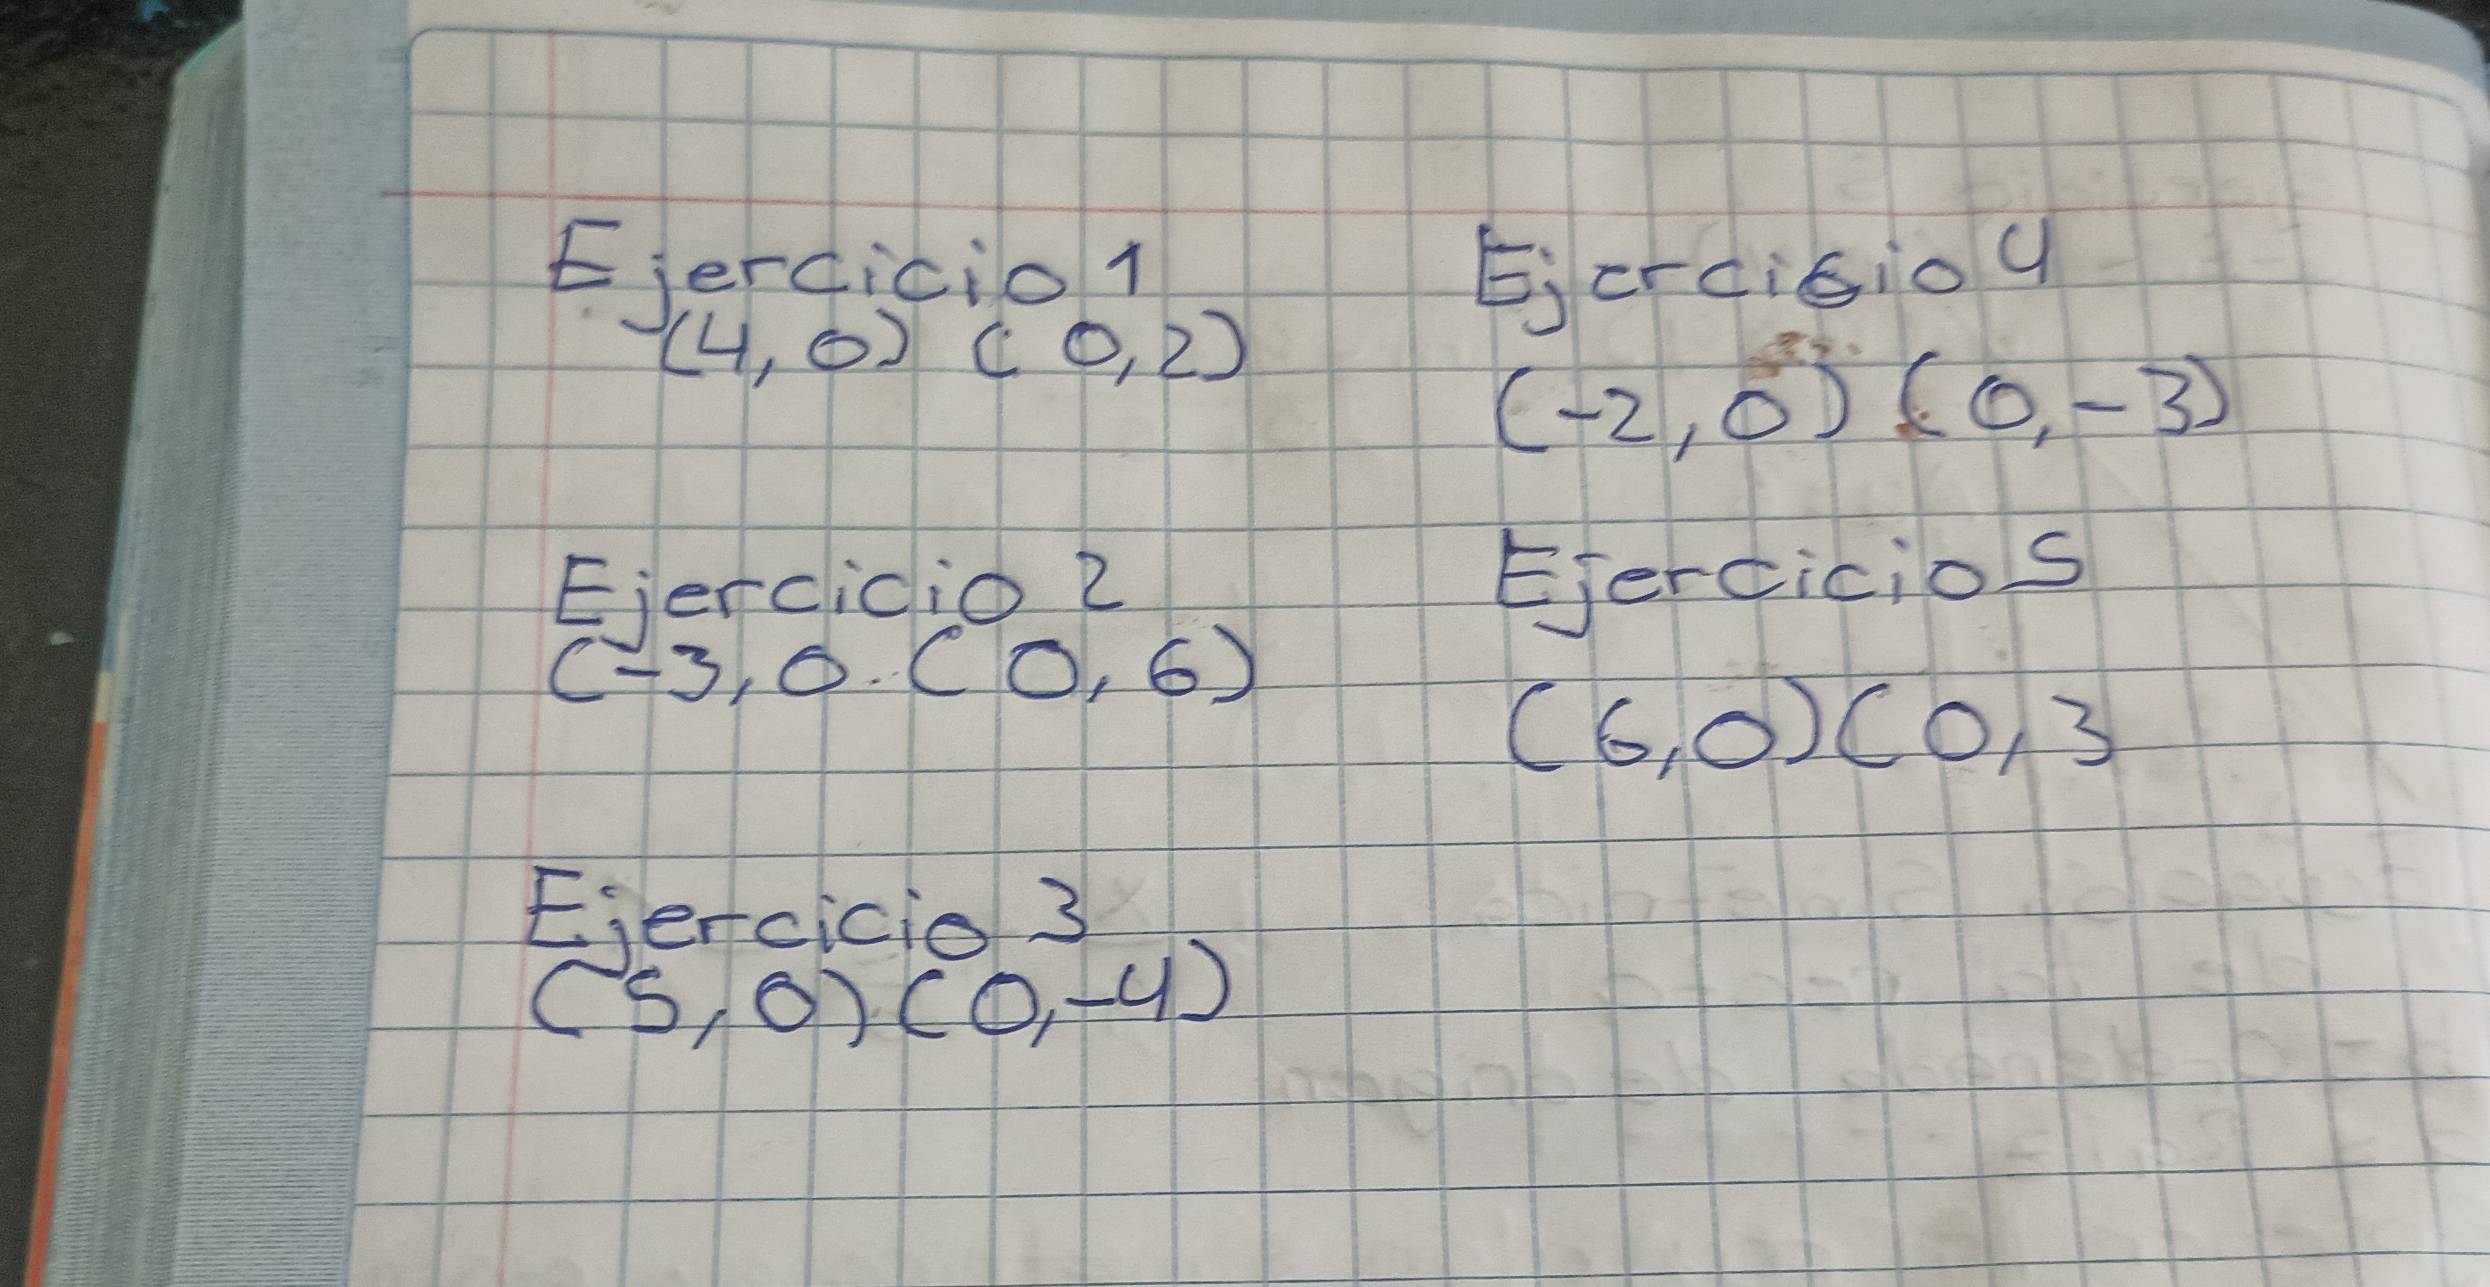 Ejercicio 1
(4,0) (0,2)
Ejercicio 2
(-3,0.(0,6)
Ejercicio 3
(5,0)(0,-4)
Ejercicio 4
(-2,0)(0,-3)
Ejercicio 5
(6,0)(0,3